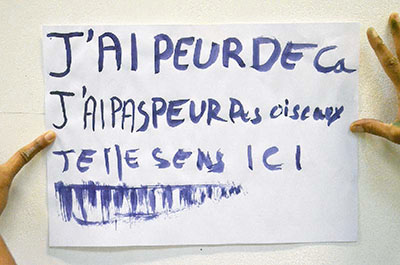 J'AI PEUR DE Ca
J'AI PAS PEUR Des oiseaux
JE lle SENS ICI